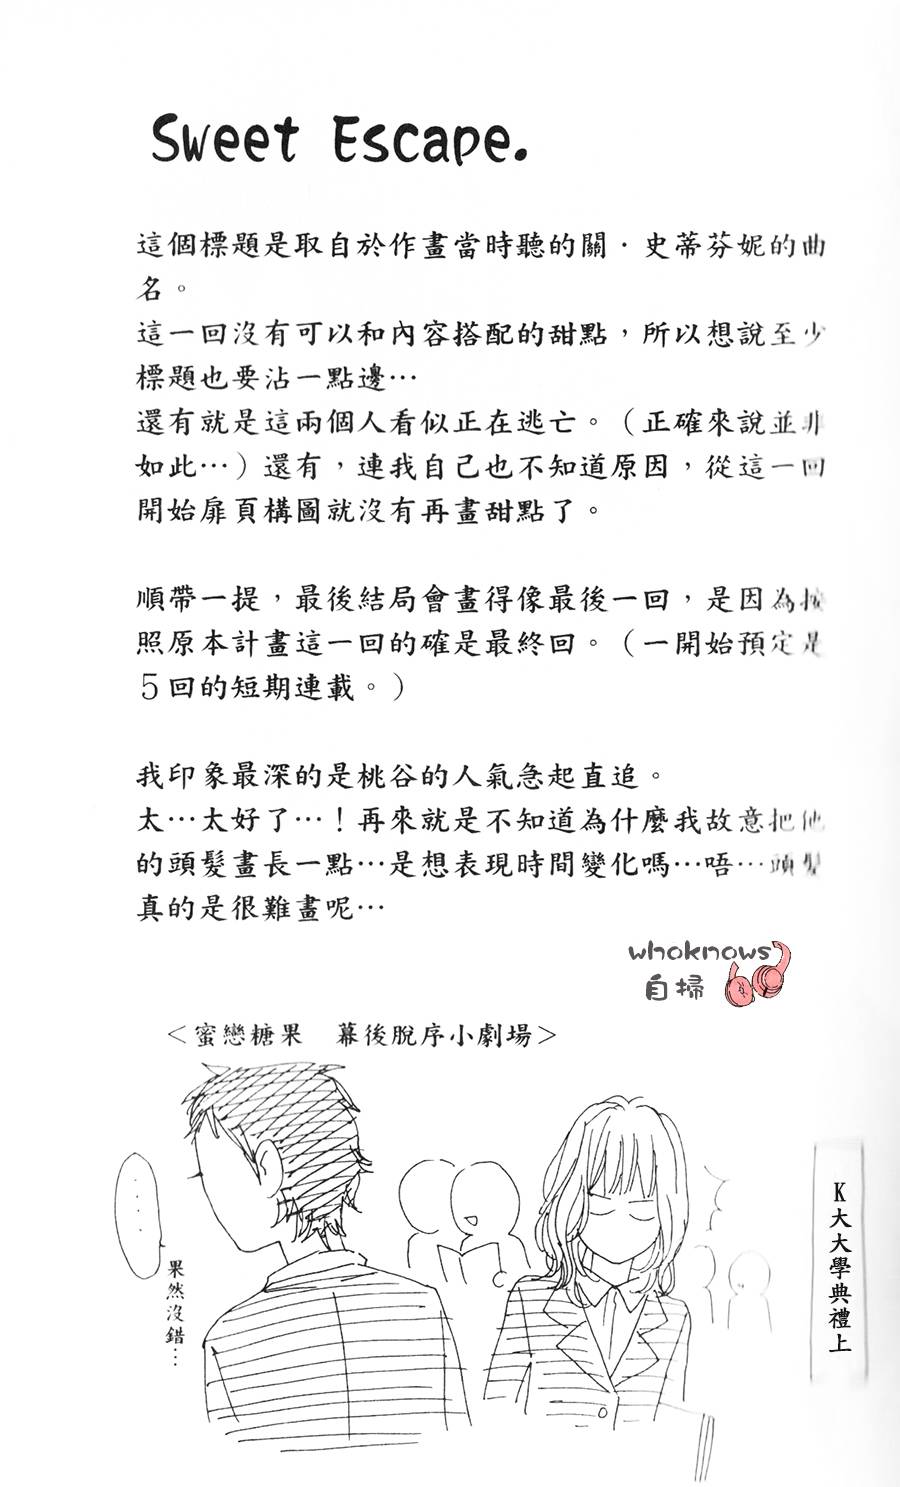 Sweet Escape.
這個標題是取自於作畫當時聽的關．史蒂芬妮的曲
名。
這一回沒有可以和內容搭配的甜點，所以想說至少
標題也要沾一點邊…
還有就是這兩個人看似正在逃亡。（正確來說並非
如此…）還有，連我自己也不知道原因，從這一回
開始扉頁構圖就沒有再畫甜點了。
順帶一提，最後結局會畫得像最後一回，是因為按
照原本計畫這一回的確是最終回。（一開始預定是
５回的短期連載。）
我印象最深的是桃谷的人氣急起直追。
太…太好了…！再來就是不知道為什麼我故意把他
的頭髮畫長一點…是想表現時間變化嗎…唔…頭髮
真的是很難畫呢…
whoknows
自掃
＜蜜戀糖果　幕後脫序小劇場＞
‥‥
果然沒錯…
K大大學典禮上